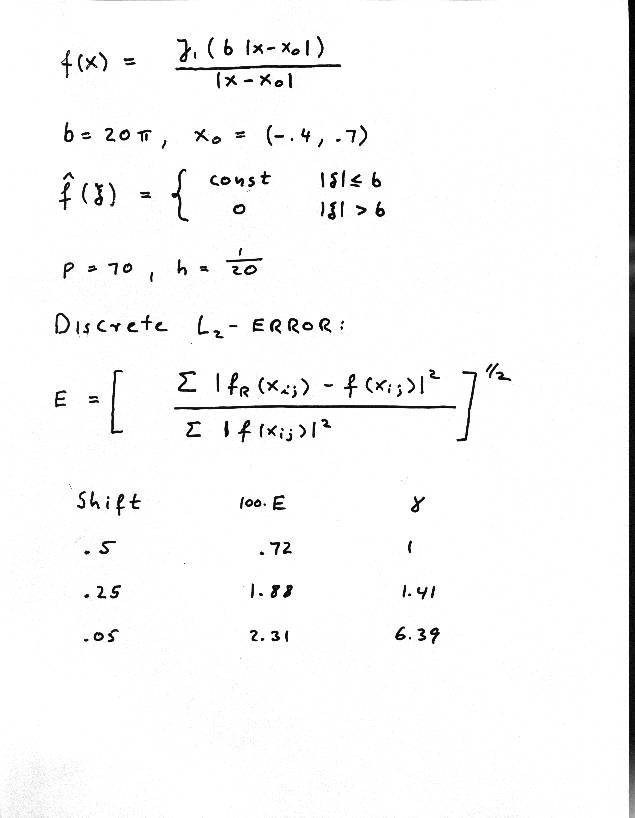 f(x) = J₁(b |x-x₀|) / |x-x₀|
b = 20π, x₀ = (-.4, .7)
f̂(ξ) = { const |ξ| ≤ b
0 |ξ| > b
p = 70, h = 1/20
Discrete L₂-ERROR:
E = [ Σ |f_R(x_ij) - f(x_ij)|² / Σ |f(x_ij)|² ]^1/2
Shift 100. E γ
.5 .72 1
.25 1.88 1.41
.05 2.31 6.39